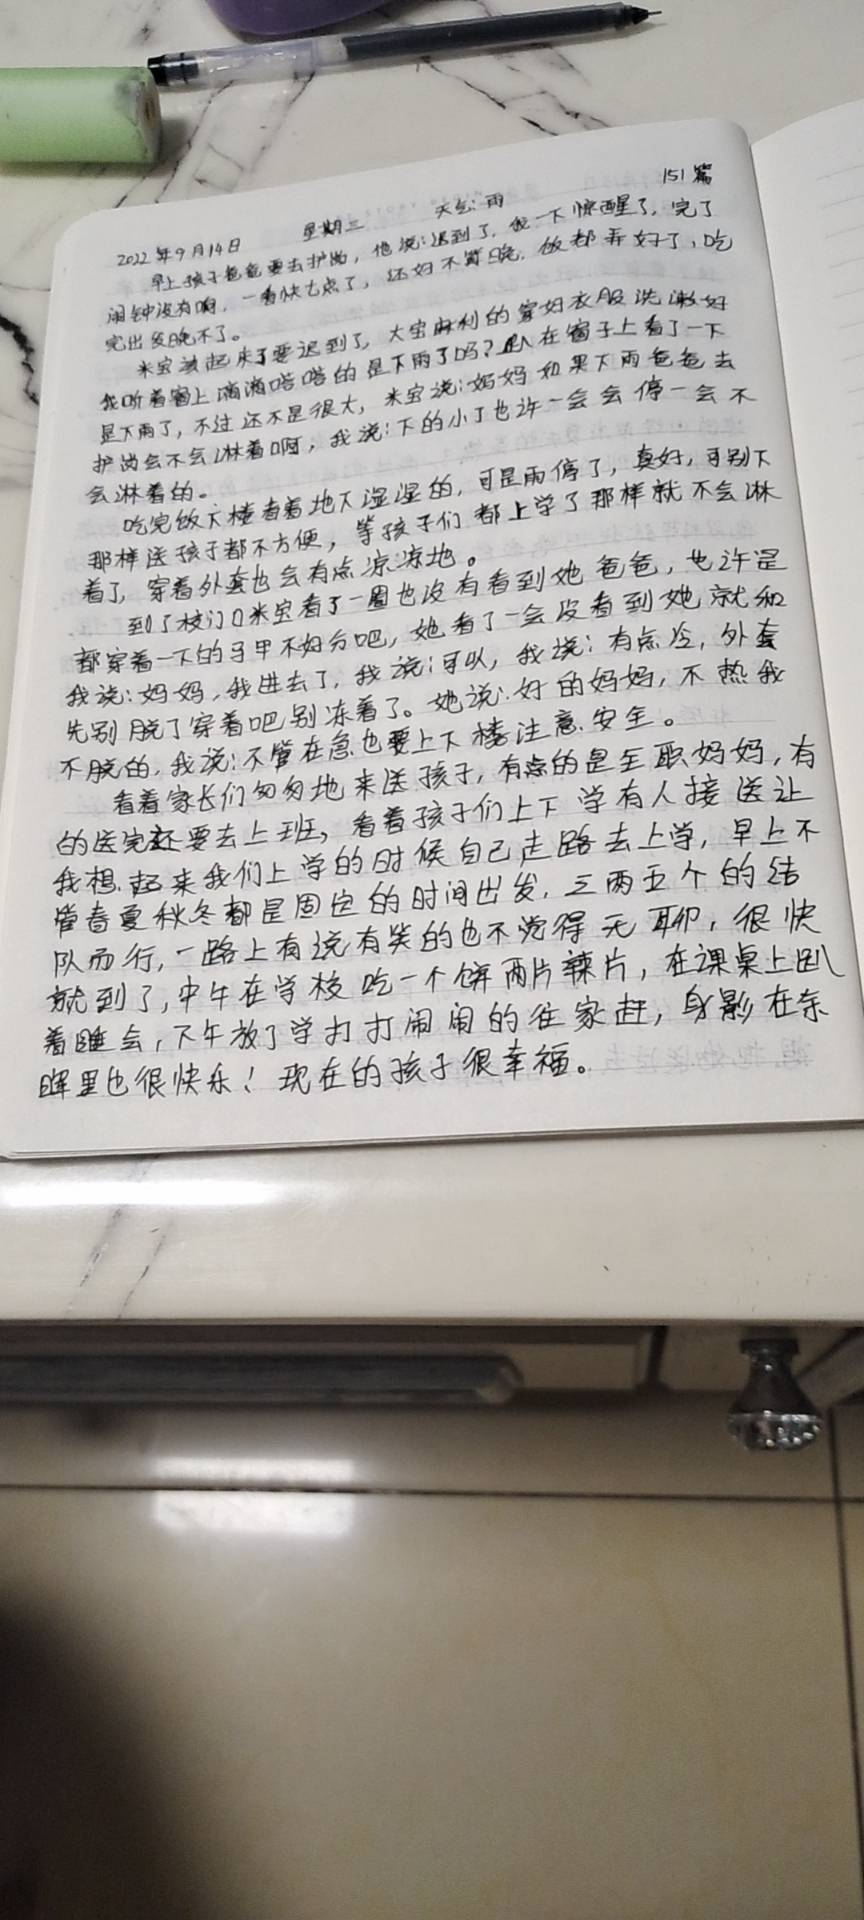 151篇
2022年9月14日 星期三 天气:雨
早上孩子爸爸要去护岗,他说:迟到了,我一下惊醒了,完了
闹钟没有响,一看快七点了,还好不算晚,饭都弄好了,吃
完出发晚不了。
米宝该起床了要迟到了,大宝麻利的穿好衣服洗漱好
我听着窗上滴滴嗒嗒的是下雨了吗?趴在窗子上看了一下
是下雨了,不过还不是很大,米宝说:妈妈如果下雨爸爸去
护岗会不会淋着啊,我说:下的小了也许一会会停一会不
会淋着的。
吃完饭下楼看着地下湿湿的,可是雨停了,真好,可别下
那样送孩子都不方便,等孩子们都上学了那样就不会淋
着了,穿着外套也会有点凉凉地。
到了校门口米宝看了一圈也没有看到她爸爸,也许是
都穿着一下的马甲不好分吧,她看了一会没看到她就和
我说:妈妈,我进去了,我说:可以,我说:有点冷,外套
先别脱了穿着吧别冻着了。她说:好的妈妈,不热我
不脱的,我说:不管在急也要上下楼注意安全。
看着家长们匆匆地来送孩子,有点的是全职妈妈,有
的送完还要去上班,看着孩子们上下学有人接送让
我想起来我们上学的时候自己走路去上学,早上不
管春夏秋冬都是固定的时间出发,三两五个的结
队而行,一路上有说有笑的也不觉得无聊,很快
就到了,中午在学校吃一个饼两片辣片,在课桌上趴
着睡会,下午放了学打打闹闹的往家赶,身影在余
晖里也很快乐!现在的孩子很幸福。